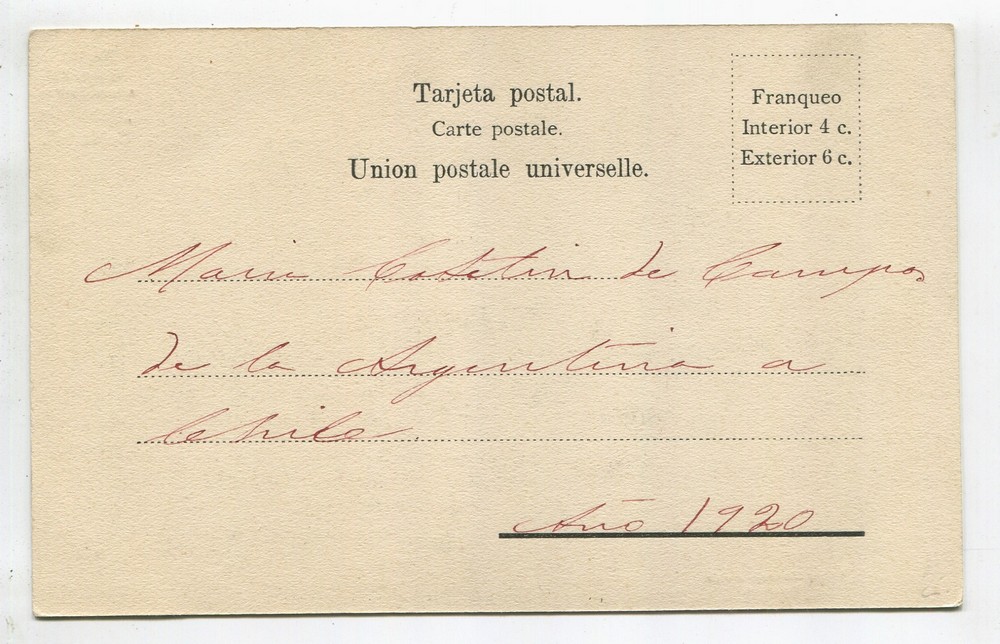 Tarjeta postal.
Carte postale.
Union postale universelle.
Franqueo
Interior 4 c.
Exterior 6 c.
Maria de Campos
de la Argentina a
Chile.
Año 1920